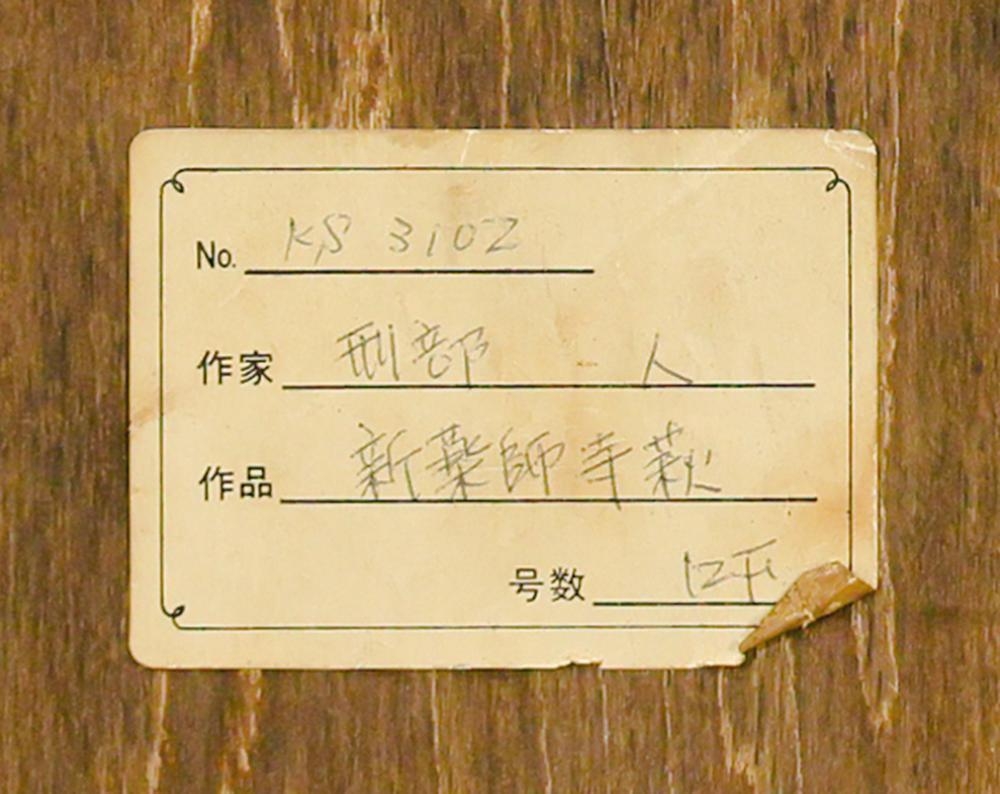 No. KS 3102
作家 刑部 人
作品 新薬師寺萩
号数 12